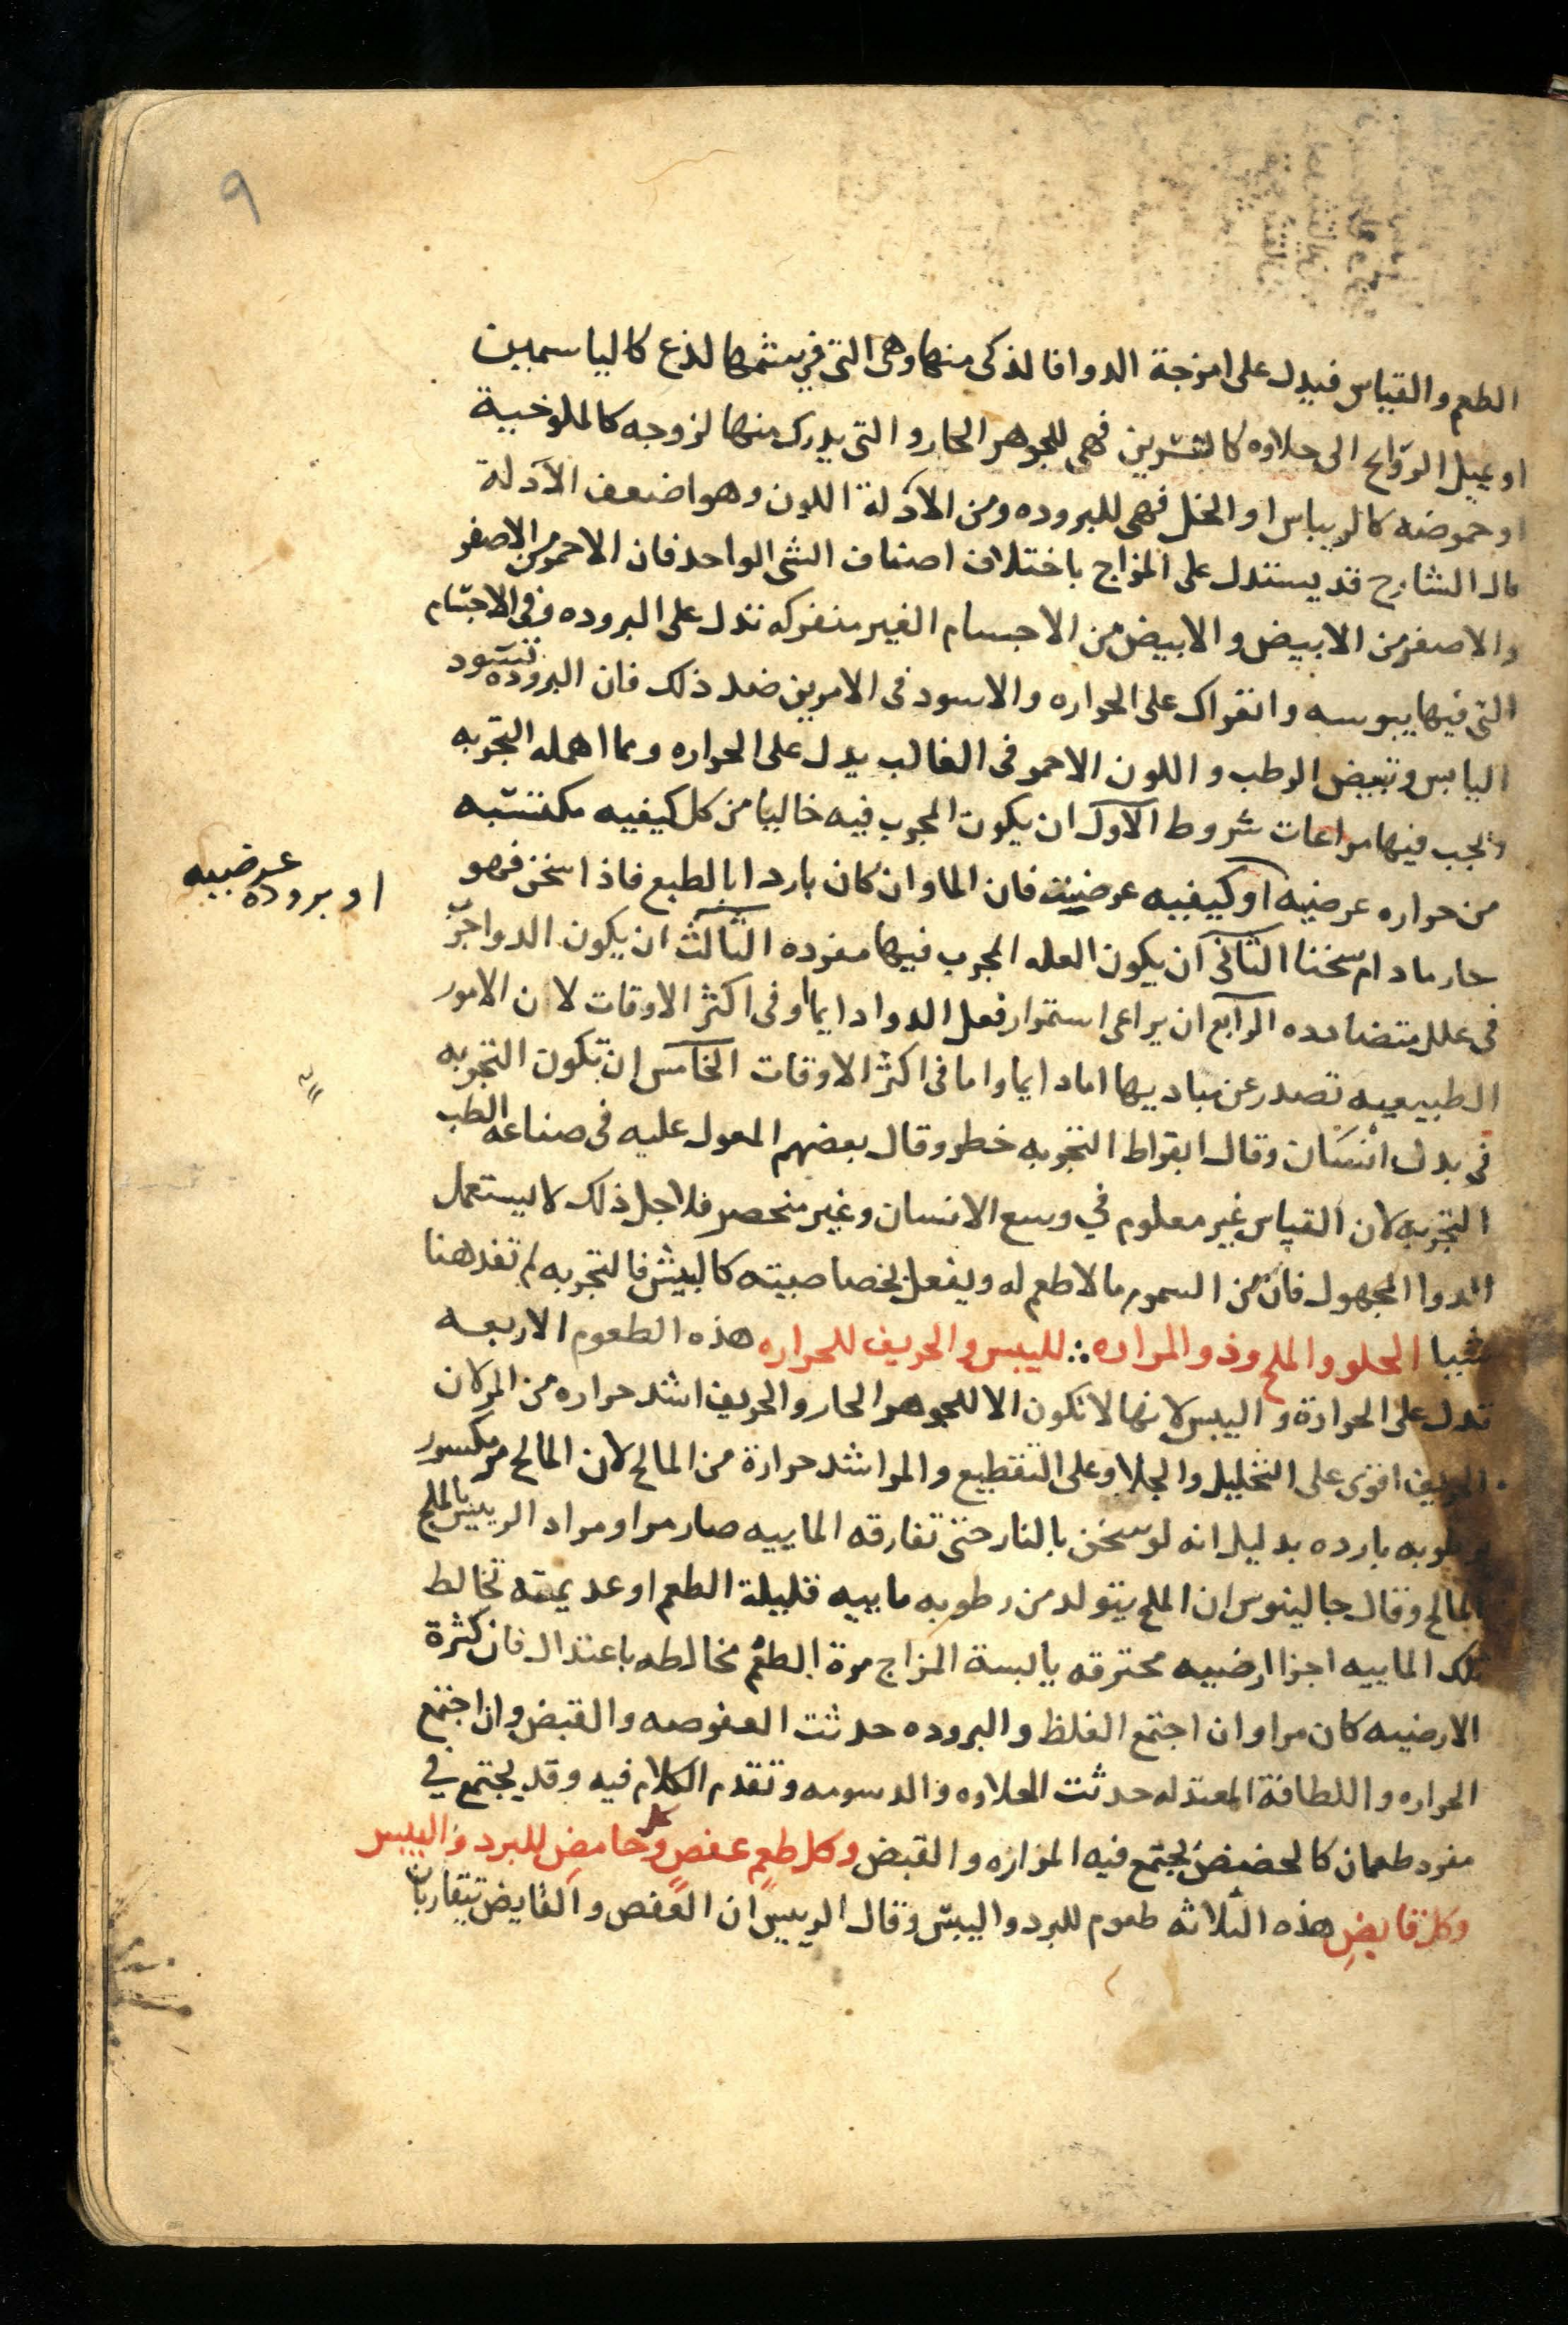 ٩
الطعم والقياس فيدل على امزجة الدوا فالذكى منها وهى التى فى شمها لذع كالياسمين
او يميل الروايح الى حلاوه كالنسرين فهى للجوهر الحار والتى يدرك منها لزوجه كالملوخية
او حموضه كالريباس او الخل فهى للبروده ومن الادلة اللون وهو اضعف الادلة
قال الشارح قد يستدل على المزاج باختلاف اصناف الشى الواحد فان الاحمر من الاصفر
والاصفر من الابيض والابيض من الاجسام الغير منفركه تدل على البروده وفى الاجسام
التى فيها يبوسه وانفراك على الحراره والاسود فى الامرين ضد ذلك فان البروده تسود
اليابس وتبيض الرطب واللون الاحمر فى الغالب يدل على الحراره ومما اهمله التجربه
ويجب فيها مراعات شروط الاول ان يكون المجرب فيه خاليا من كل كيفيه مكتسبه
من حراره عرضيه او كيفيه عرضيه فان الما وان كان باردا بالطبع فاذا سخن فهو
او بروده عرضيه
حار مادام سخنا الثانى ان يكون العله المجرب فيها مفرده الثالث ان يكون الدوا جرب
فى علل متضادده الرابع ان يراعى استمرار فعل الدوا دايما او فى اكثر الاوقات لان الامور
الطبيعيه تصدر عن مباديها اما دايما واما فى اكثر الاوقات الخامس ان تكون التجربه
فى بدن انسان وقال ابقراط التجربه خطر وقال بعضهم المعول عليه فى صناعه الطب
التجربه لان القياس غير معلوم في وسع الانسان وغير منحصر فلاجل ذلك لا يستعمل
الدوا المجهول فان من السموم ما لا طعم له ويفعل بخصاصيته كالبيش فالتجربه لم تفد هنا
شيا الحلو والملح وذو المراره ∴ لليبس والحريف للحراره هذه الطعوم الاربعه
تدل على الحرارة واليبس لانها لا تكون الا للجوهر الحار والحريف اشد حراره من المر لان
الحريف اقوى على التحليل والجلا وعلى التقطيع والمر اشد حرارة من المالح لان المالح مر مكسور
برطوبه بارده بدليل انه لو سخن بالنار حتى تفارقه الماييه صار مرا ومراد الرييس بالملح
المالح وقال جالينوس ان الملح يتولد من رطوبه ماييه قليلة الطعم او عديمته تخالط
تلك الماييه اجزا ارضيه محترقه يابسة المزاج مرة الطعم مخالطه باعتدال فان كثرة
الارضيه كان مرا وان اجتمع الغلظ والبروده حدثت العفوصه والقبض وان اجتمع
الحراره واللطافة المعتدله حدثت الحلاوه والدسومه وتقدم الكلام فيه وقد يجتمع في
مفرد طعمان كالحضض يجتمع فيه المراره والقبض وكل طعم عفص وكل حامض للبرد واليبس
وكل قابض هذه الثلاثه طعوم للبرد واليبس وقال الرييس ان العفص والقابض يتقاربان